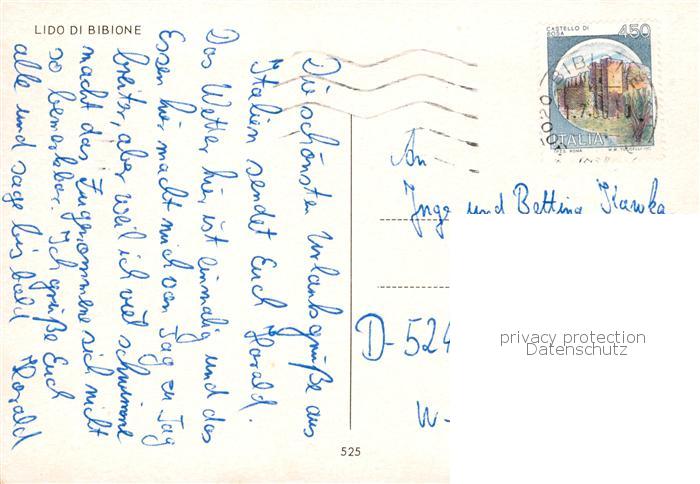 LIDO DI BIBIONE
Die schönsten Urlaubsgrüße aus
Italien sendet Euch Harald.
Das Wetter hier ist einmalig und das
Essen hier macht mich von Tag zu Tag
breiter, aber weil ich viel schwimme
macht das Zugenommene sich nicht
so bemerkbar. Ich grüße Euch
alle und sage bis bald Harald
CASTELLO DI
BOSA
450
ITALIA
An
Inge und Bettina
D-524
W-
privacy protection
Datenschutz
525